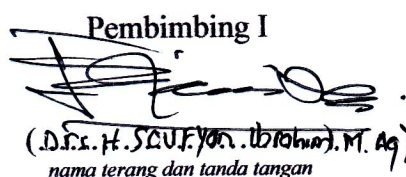 Pembimbing I
(Drs. H. Sufyan. Ibrahim). M. Ag)
nama terang dan tanda tangan